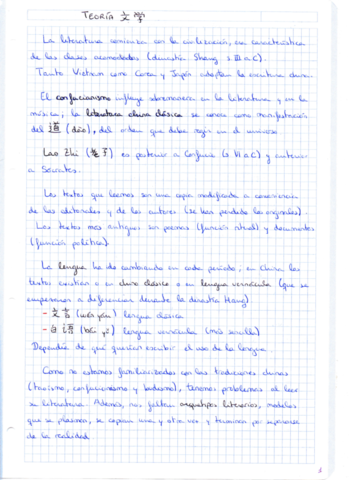 TEORÍA 文学
La literatura comienza con la civilización, era característica
de las clases acomodadas (dinastía Shang s III a.C).
Tanto Vietnam como Corea y Japón adoptan la escritura china.
El confucianismo influye sobremanera en la literatura y en la
música, la literatura china clásica se concibe como manifestación
del 道 (dào), del orden que debe regir en el universo
Lao Zhi (老子) es posterior a Confucio (S VI a.C) y anterior
a Sócrates.
Los textos que leemos son una copia modificada a conveniencia
de las editoriales y de los autores (se han perdido los originales).
Los textos más antiguos son poemas (función ritual) y documentos
(función política).
La lengua ha ido cambiando en cada periodo; en China los
textos existían o en chino clásico o en lengua vernácula (que se
empezaron a diferenciar durante la dinastía Hang)
- 文言 (wén yán) lengua clásica
- 白话 (bái) lengua vernácula (más sencilla)
Dependía de qué querían escribir el uso de la lengua.
Como no estamos familiarizados con las tradiciones chinas
(taoísmo, confucianismo y budismo), tenemos problemas al leer
su literatura. Además, nos faltan arquetipos literarios, modelos
que se plasman, se copian una y otra vez y terminan por
de la realidad
1